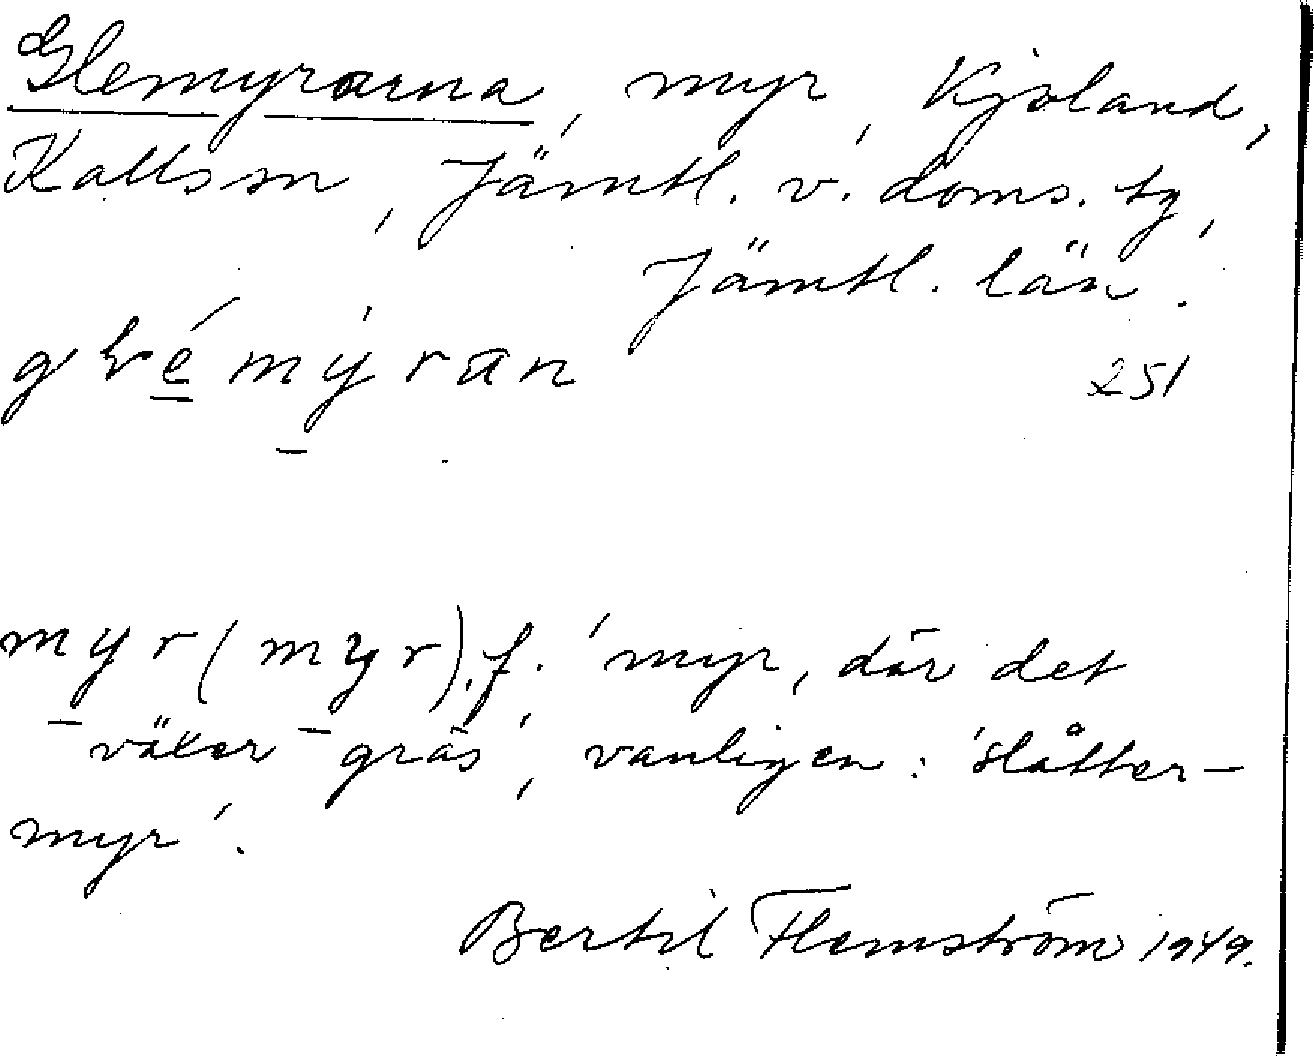 Glemyrarna, myr, Kjoland,
Kalls sn, Jämtl. v. doms. tg,
Jämtl. län.
myran
251
myr (myr), f. 'myr, där det
växer gräs', vanligen: 'slåtter-
myr'.
Bertil Flemström 1949.